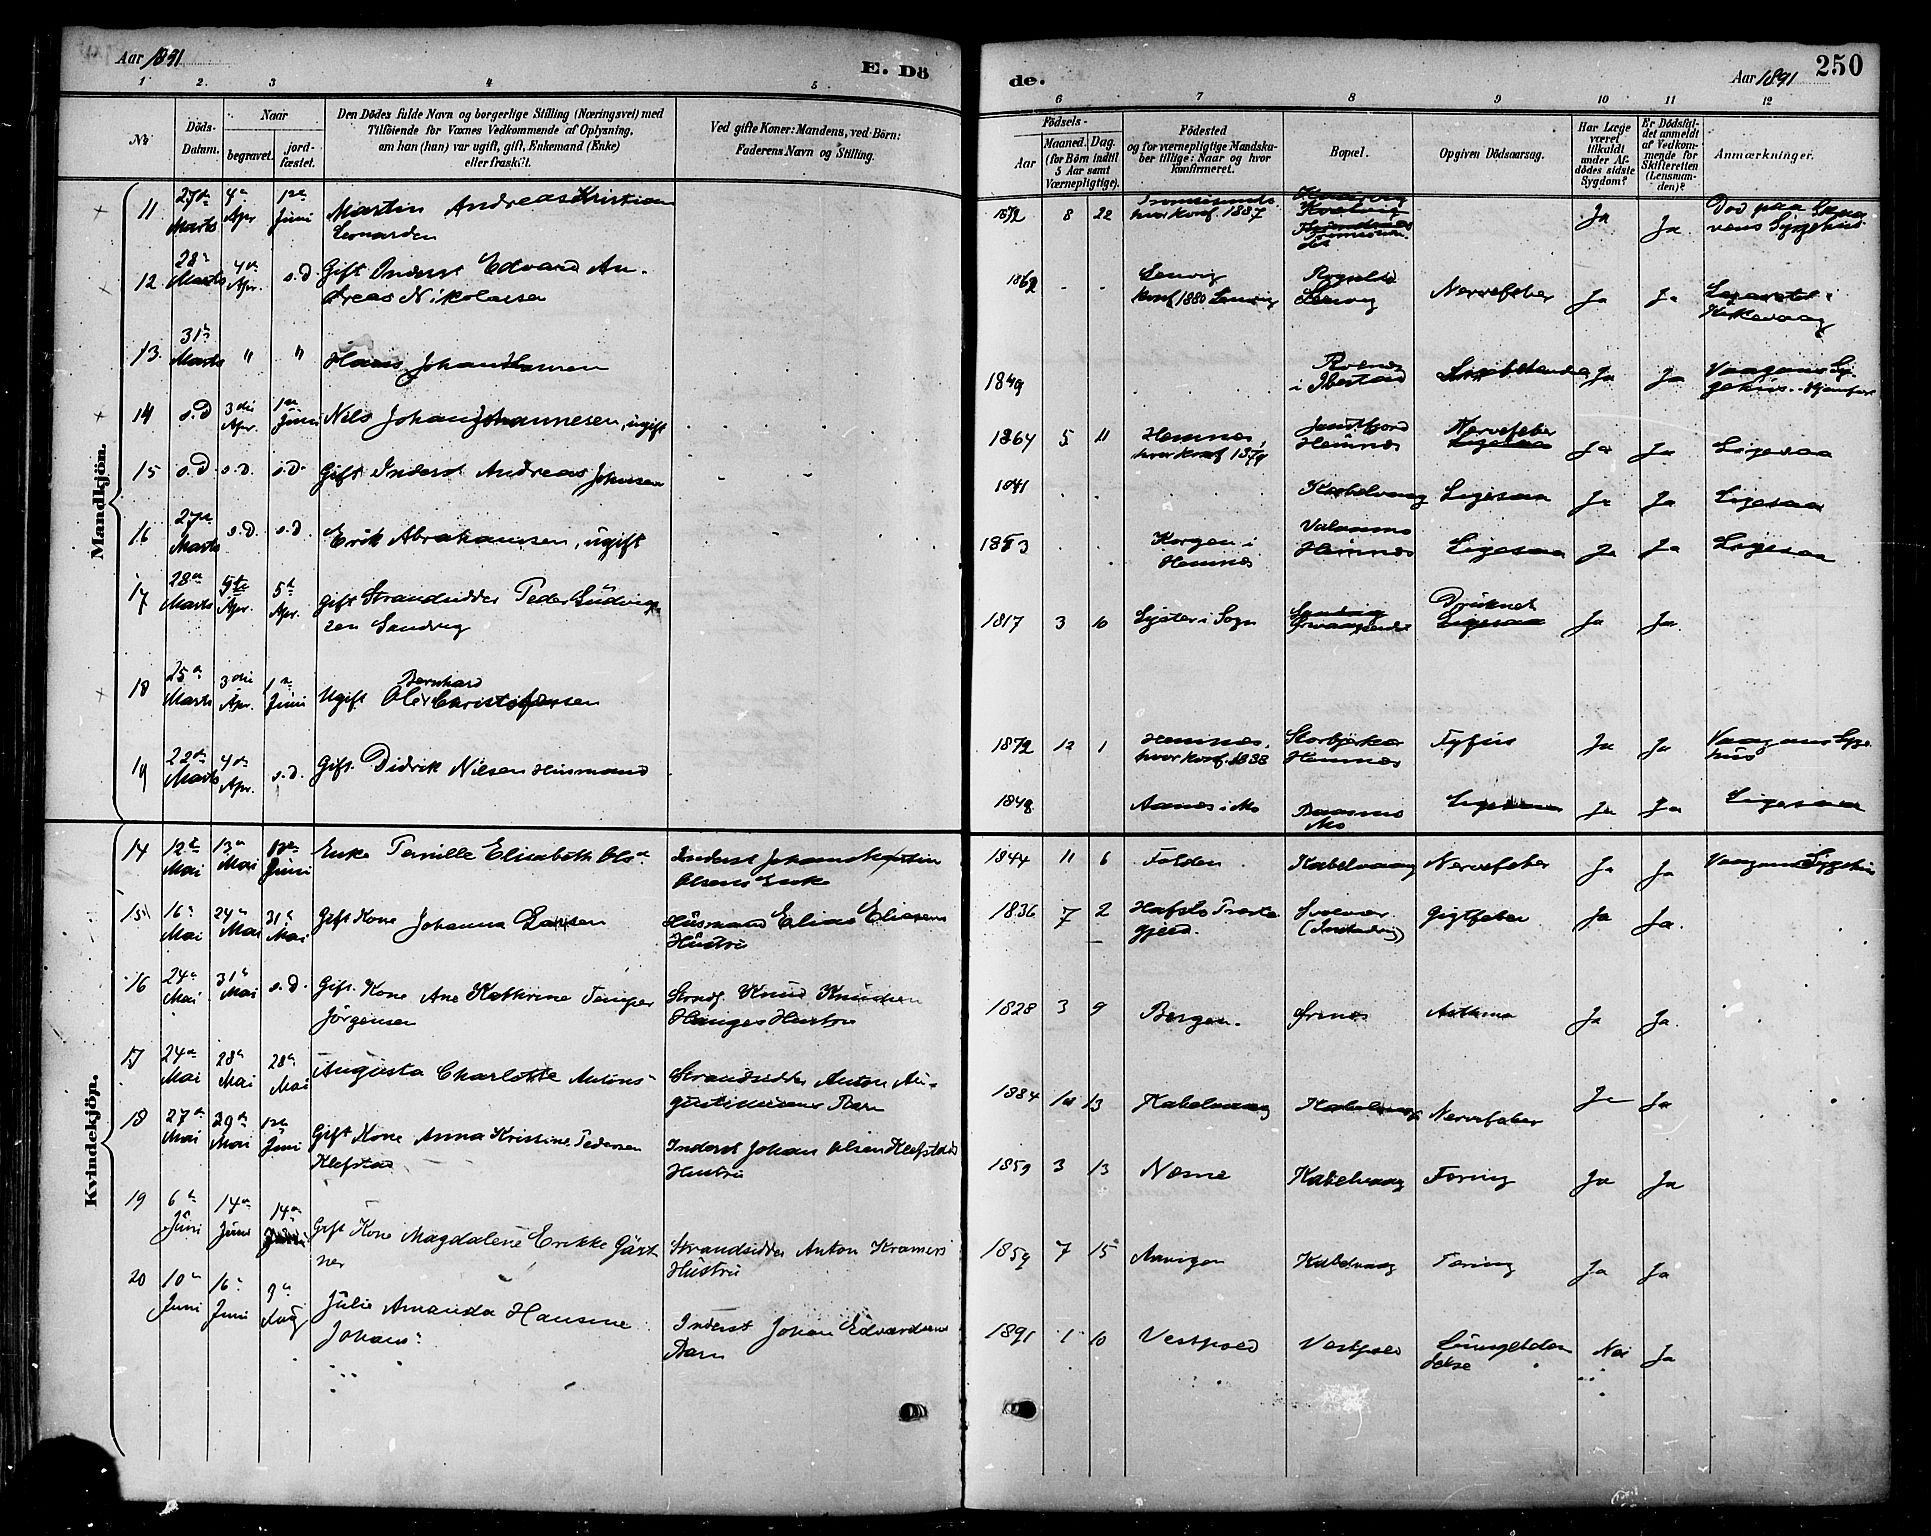 Aar 1891
E. Dö
de.
Aar 1891
250
1 2. 3 4 5.
6 7 8 9 10 11 12
No
Döds-
Datum.
Naar
begravet.
jord-
fæstet.
Den Dödes fulde Navn og borgerlige Stilling (Næringsvei) med
Tilföiende for Voxnes Vedkommende af Oplysning,
om han (hun) var ugift, gift, Enkemand (Enke)
eller fraskilt.
Ved gifte Koner: Mandens, ved Börn:
Faderens Navn og Stilling.
Födsels-
Aar
Maaned. Dag.
(for Börn indtil
5 Aar samt
Værnepligtige).
Födested
og for værnepligtige Mandska-
ber tillige: Naar og hvor
konfirmeret.
Bopæl.
Opgiven Dödsaarsag.
Har Læge
været
tilkaldt
under Af-
dödes sidste
Sygdom?
Er Dödsfal-
det anmeldt
af Vedkom-
mende for
Skifteretten
(Lensman-
den)?
Anmærkninger.
Mandkjön.
11 27de Marts 4de Apr 1ste Juni Martin Andreas Kristian
Leonardsen
1872 8 22 hvor konf. 1887 Ja Ja Död paa
Sygehus
12 28de Marts 4de Apr. s.D. Gift Inderst Edvard An-
dreas Nikolaisen
1862 - - Lenvig
konf 1880 Lenvig Lenvig Nervefeber Ja Ja Lazarettet i
Kabelvaag
13 31te Marts " " Hans Johan Hansen
1849 i Ibestad Ja Ja Vaagans Sy-
gehus.
14 s.D 3die Apr. 1ste Juni Nils Johan Johannesen, ugift
1864 5 11 Hemnes,
hvor konf 1879 Hemnes Nervefeber
Ligesaa Ja Ja Ligesaa
15 s.D s.D. s.D. Gift Inderst Andreas Johnsen
1841 Kabelvaag Ligesaa Ja Ja Ligesaa
16 27de Marts s.D. s.D. Erik Abrahamsen, ugift
1853 Korgen i
Hemnes Hemnes Ligesaa Ja Ja Ligesaa
17 28de Marts 5te Apr. 5te Apr. Gift Strandsidder Peder Ludvig-
sen Sandvig
1817 3 10 Lyster i Sogn Druknet
Ligesaa Ja Ja
18 25de Marts 3die Apr. 1ste Juni Ugift Ole Bernhard Christofersen
1872 12 1 Hemnes,
hvor konf. 1888 Storbjerkor
Hemnes Tyfus Ja Ja Vaagans Syge-
hus
19 22de Marts 4de Apr. s.D. Gift. Didrik Nilsen Husmand
1848 Mo Ligesaa Ja Ja Ligesaa
Kvindekjöp.
14 12te Mai 13de Mai Juni Enke Pernille Elisabeth Ols-
Inderst Johan Martin
Olsens Enke
1844 11 6 Folden Kabelvaag Nervefeber Ja Ja Vaagans Sygehus
15 16de Mai 24de Mai 31te Mai Gift Kone Johanna Larsen
Husmand Elias Eliasens
Hustru
1836 7 2 Hafslo Præste
gjeld. Svolvær Gigtfeber Ja Ja.
16 24de Mai 31te Mai s.D. Gift. Kone Ane Kathrine
Jörgensen
Strads. Knud Knudsen
Hauges Hustru
1828 3 9 Bergen. Örnes Asthma Ja Ja.
17 24de Mai 28de Mai 28de Mai Augusta Charlotte Antons-
Strandsidder Anton Au-
gustinusens Barn
1884 10 13 Kabelvaag Kabelvaag Nervefeber Ja Ja
18 27de Mai 29de Mai 1ste Juni Gift Kone Anna Kristine Pedersen
Klefstad
Inderst Johan Olsen Klefstads
Hustru
1859 3 13 Nesne Kabelvaag Tæring Ja Ja
19 6te Juni 14de Juni 14de Juni Gift Kone Magdalene Erikke Gärt-
ner
Strandsidder Anton Kramers
Hustru
1859 7 15 Kabelvaag Tæring Ja Ja
20 10de Juni 16de Juni 9de Aug Julie Amanda Hansine
Johans-
Inderst Johan Edvardsens
Barn
1891 1 10 Vestpold Vestpold Lungebetæn-
delse Nei Ja